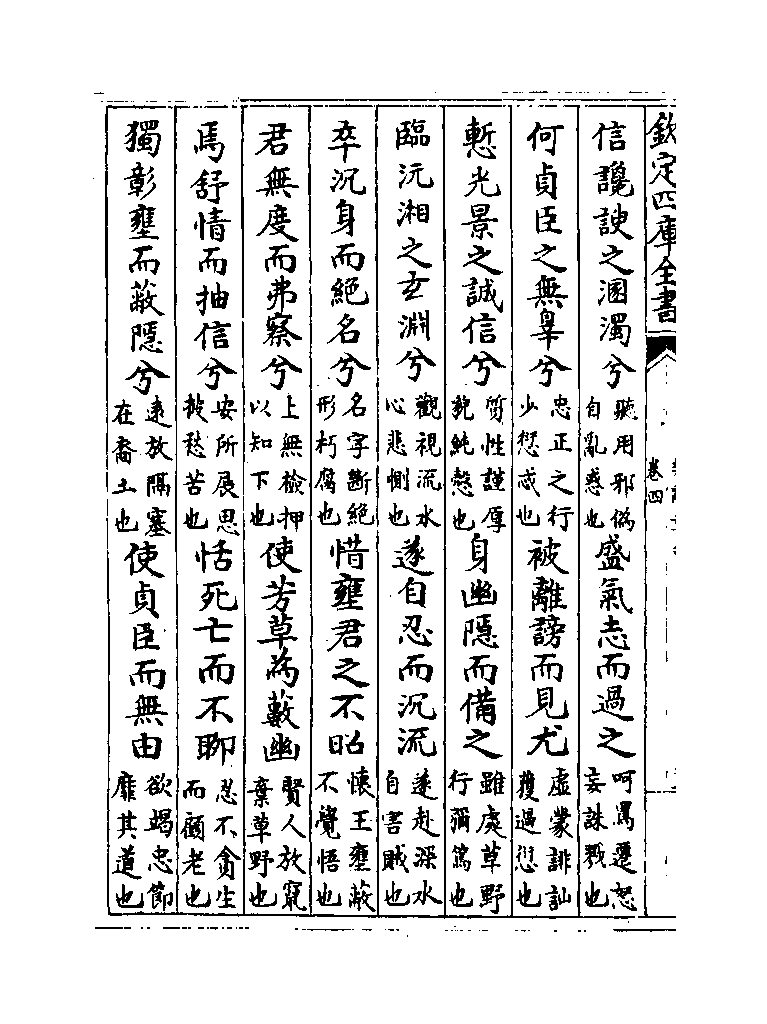 欽定四庫全書
卷四
信讒諛之溷濁兮聽用邪偽自亂惑也盛氣志而過之呵罵遷怒妄誅戮也
何貞臣之無辠兮忠正之行少愆忒也被離謗而見尤虛蒙誹訕獲過愆也
慙光景之誠信兮質性謹厚貌純慤也身幽隱而備之雖處草野行彌篤也
臨沅湘之玄淵兮觀視流水心悲惻也遂自忍而沉流遂赴深水自害賊也
卒沉身而絕名兮名字斷絕形朽腐也惜壅君之不昭懷王壅蔽不覺悟也
君無度而弗察兮上無檢押以知下也使芳草為藪幽賢人放竄棄草野也
焉舒情而抽信兮安所展思披愁苦也恬死亡而不聊忍不貪生而顧老也
獨彰壅而蔽隱兮遠放隔塞在裔土也使貞臣而無由欲竭忠節靡其道也